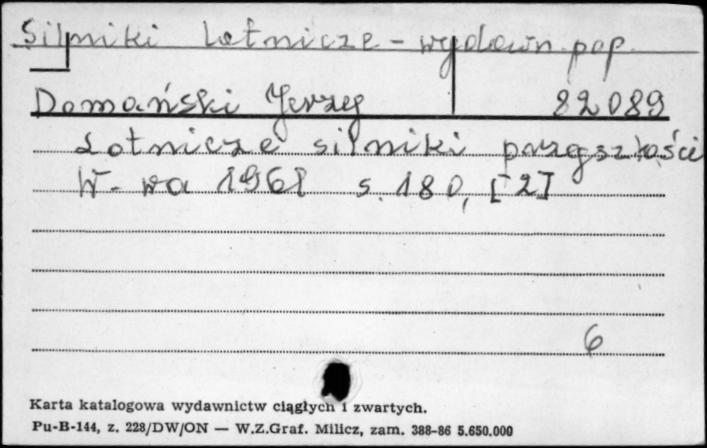 Silniki Lotnicze - wydawn. pop.
Domański Jerzy 82089
Lotnicze silniki przyszłości
W-wa 1961 s. 180, [2]
6
Karta katalogowa wydawnictw ciągłych i zwartych.
Pu-B-144, z. 228/DW/ON — W.Z.Graf. Milicz, zam. 388-86 5.650.000